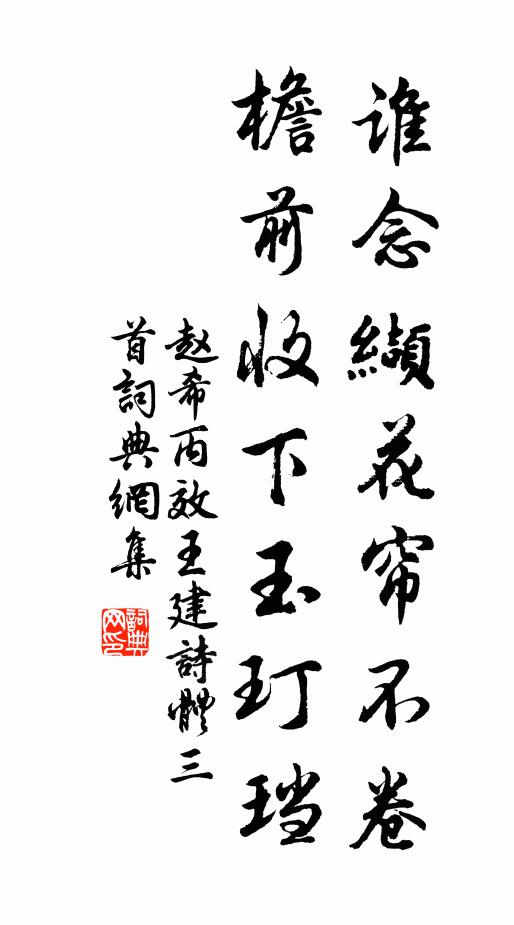 谁念纈花帘不卷
檐前收下玉玎珰
赵希丙效王建詩體三
首詞典網集
詞典
网印